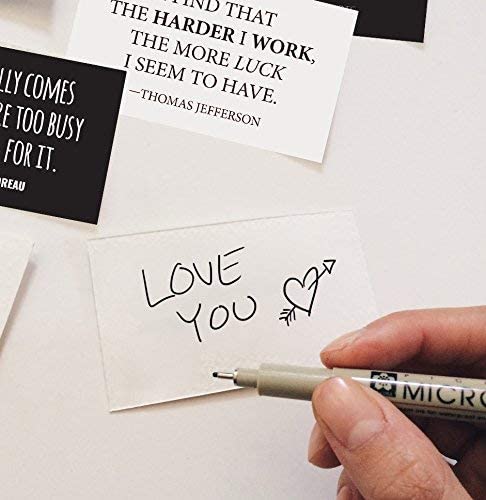 FIND THAT
THE HARDER I WORK,
THE MORE LUCK
I SEEM TO HAVE.
—THOMAS JEFFERSON
LLY COMES
RE TOO BUSY
FOR IT.
OREAU
LOVE
YOU
MICRO